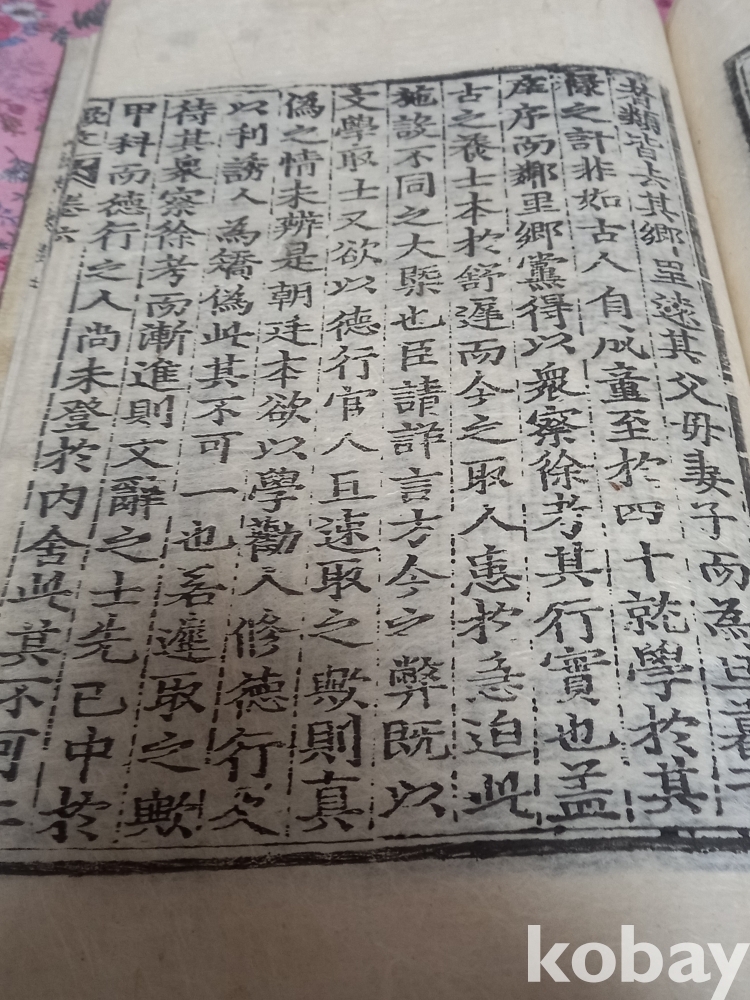 者類皆去其鄉里遠其父母妻子而為旦暮
祿之計非如古人自成童至於四十就學於其
庠序而鄰里鄉黨得以衆察徐考其行實也盖
古之養士本於舒遲而今之取人患於急迫此
施設不同之大槩也臣請詳言方今之弊既以
文學取士又欲以德行官人且速取之歟則真
偽之情未辨是朝廷本欲以學勸人修德行反
以利誘人為矯偽此其不可一也若遲取之歟
待其衆察徐考而漸進則文辭之士先已中於
甲科而德行之人尚未登於內舍此其不可二
歐文 卷六
kobay